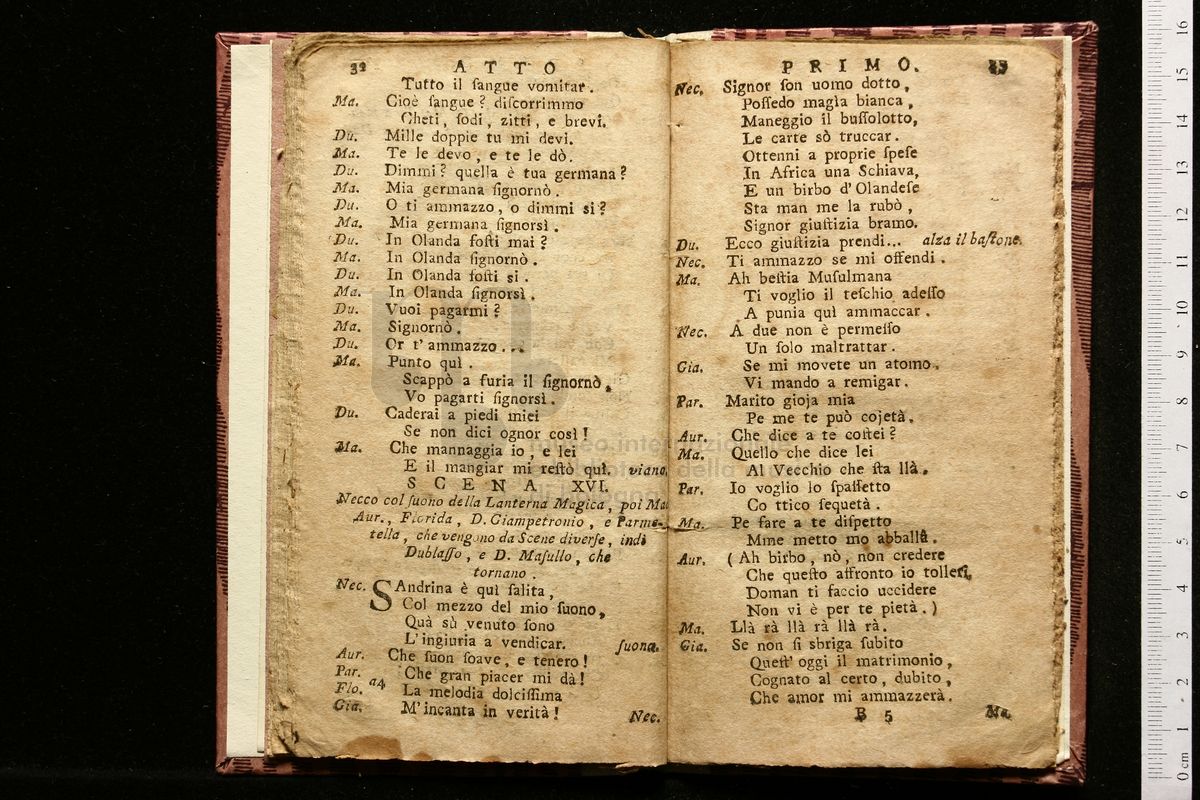 32 ATTO
Tutto il ſangue vomitar.
Ma. Cioè ſangue? diſcorrimmo
Cheti, ſodi, zitti, e brevi.
Du. Mille doppie tu mi devi.
Ma. Te le devo, e te le dò.
Du. Dimmi? quella è tua germana?
Ma. Mia germana ſignornò.
Du. O ti ammazzo, o dimmi si?
Ma. Mia germana ſignorsì.
Du. In Olanda foſti mai?
Ma. In Olanda ſignornò.
Du. In Olanda foſti si.
Ma. In Olanda ſignorsì.
Du. Vuoi pagarmi?
Ma. Signornò.
Du. Or t'ammazzo...
Ma. Punto quì.
Scappò a furia il ſignornò,
Vo pagarti ſignorsì.
Du. Caderai a piedi miei
Se non dici ognor così!
Ma. Che mannaggia io, e lei
E il mangiar mi reſtò quì. viano.
SCENA XVI.
Necco col ſuono della Lanterna Magica, poi Ma
Aur., Florida, D. Giampetronio, e Parme-
tella, che vengono da Scene diverſe, indi
Dublaſſo, e D. Maſullo, che
tornano.
Nec. SAndrina è quì ſalita,
Col mezzo del mio ſuono,
Quà sù venuto ſono
L'ingiuria a vendicar. ſuona.
Aur. Che ſuon ſoave, e tenero!
Par. Che gran piacer mi dà!
Flo. a4 La melodia dolciſſima
Gia. M'incanta in verità!
Nec.
PRIMO. 33
Nec. Signor ſon uomo dotto,
Poſſedo magìa bianca,
Maneggio il buſſolotto,
Le carte sò truccar.
Ottenni a proprie ſpeſe
In Africa una Schiava,
E un birbo d'Olandeſe
Sta man me la rubò,
Signor giuſtizia bramo.
Du. Ecco giuſtizia prendi... alza il baſtone.
Nec. Ti ammazzo se mi offendi.
Ma. Ah beſtia Muſulmana
Ti voglio il teſchio adeſſo
A punia quì ammaccar.
Nec. A due non è permeſſo
Un ſolo maltrattar.
Gia. Se mi movete un atomo,
Vi mando a remigar.
Par. Marito gioja mia
Pe me te può cojetà.
Aur. Che dice a te coſtei?
Ma. Quello che dice lei
Al Vecchio che ſta llà.
Par. Io voglio lo ſpaſſetto
Co ttico ſequetà.
Ma. Pe fare a te diſpetto
Mme metto mo abballà.
Aur. (Ah birbo, nò, non credere
Che queſto affronto io tolleri,
Doman ti faccio uccidere
Non vi è per te pietà.)
Ma. Llà rà llà rà llà rà.
Gia. Se non ſi sbriga ſubito
Queſt' oggi il matrimonio,
Cognato al certo, dubito,
Che amor mi ammazzerà.
B 5 Ma.
0 cm 1 2 3 4 5 6 7 8 9 10 11 12 13 14 15 16